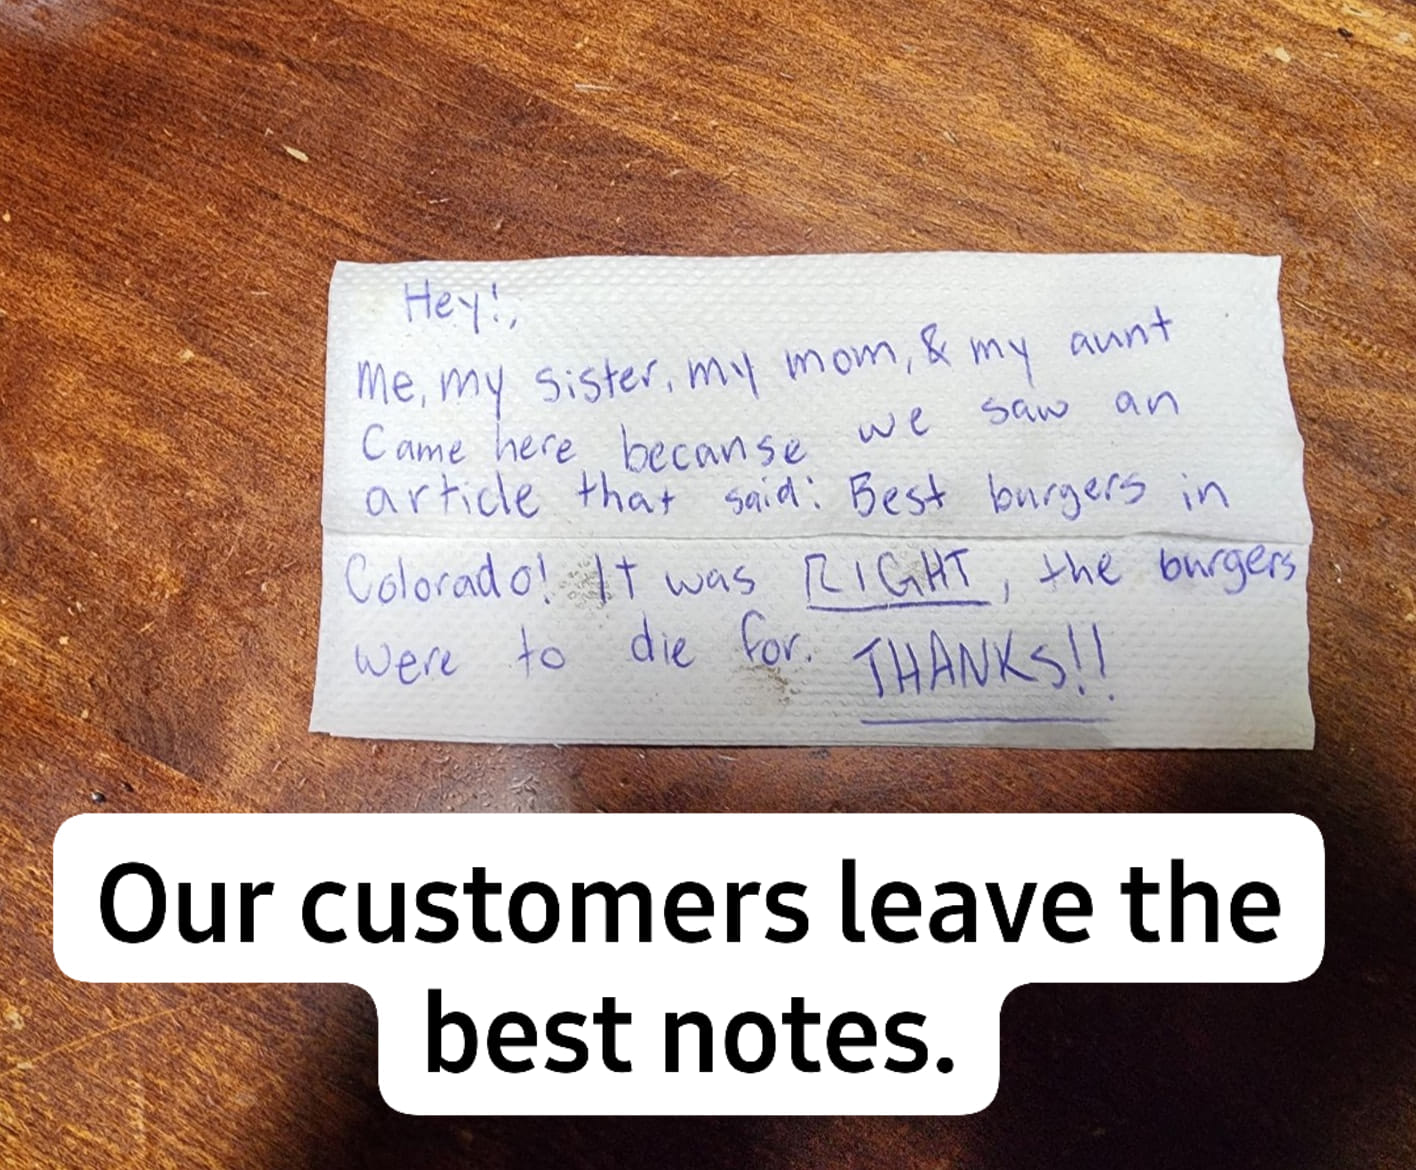 Hey!,
Me, my sister, my mom, & my aunt
Came here because we saw an
article that said: Best burgers in
Colorado! It was RIGHT, the burgers
were to die for. THANKS!!
Our customers leave the
best notes.